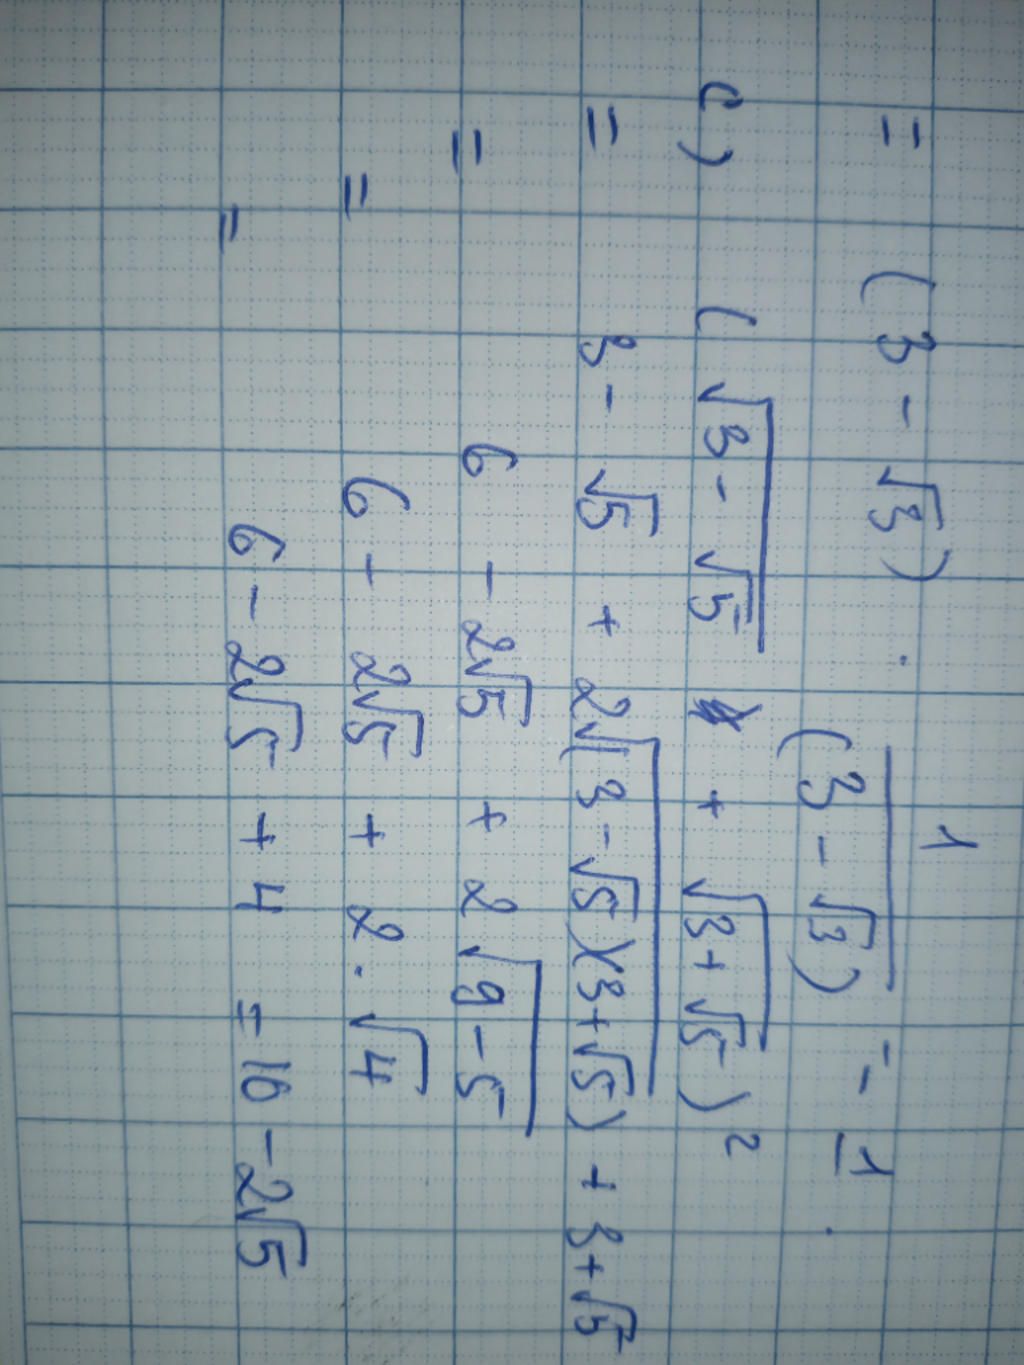 = (3 - √3) · 1/(3 - √3) = 1.
c) (√(3 - √5) + √(3 + √5))²
= 3 - √5 + 2√((3 - √5)(3 + √5)) + 3 + √5
= 6 - 2√5 + 2√(9 - 5)
= 6 - 2√5 + 2 · √4
= 6 - 2√5 + 4 = 10 - 2√5